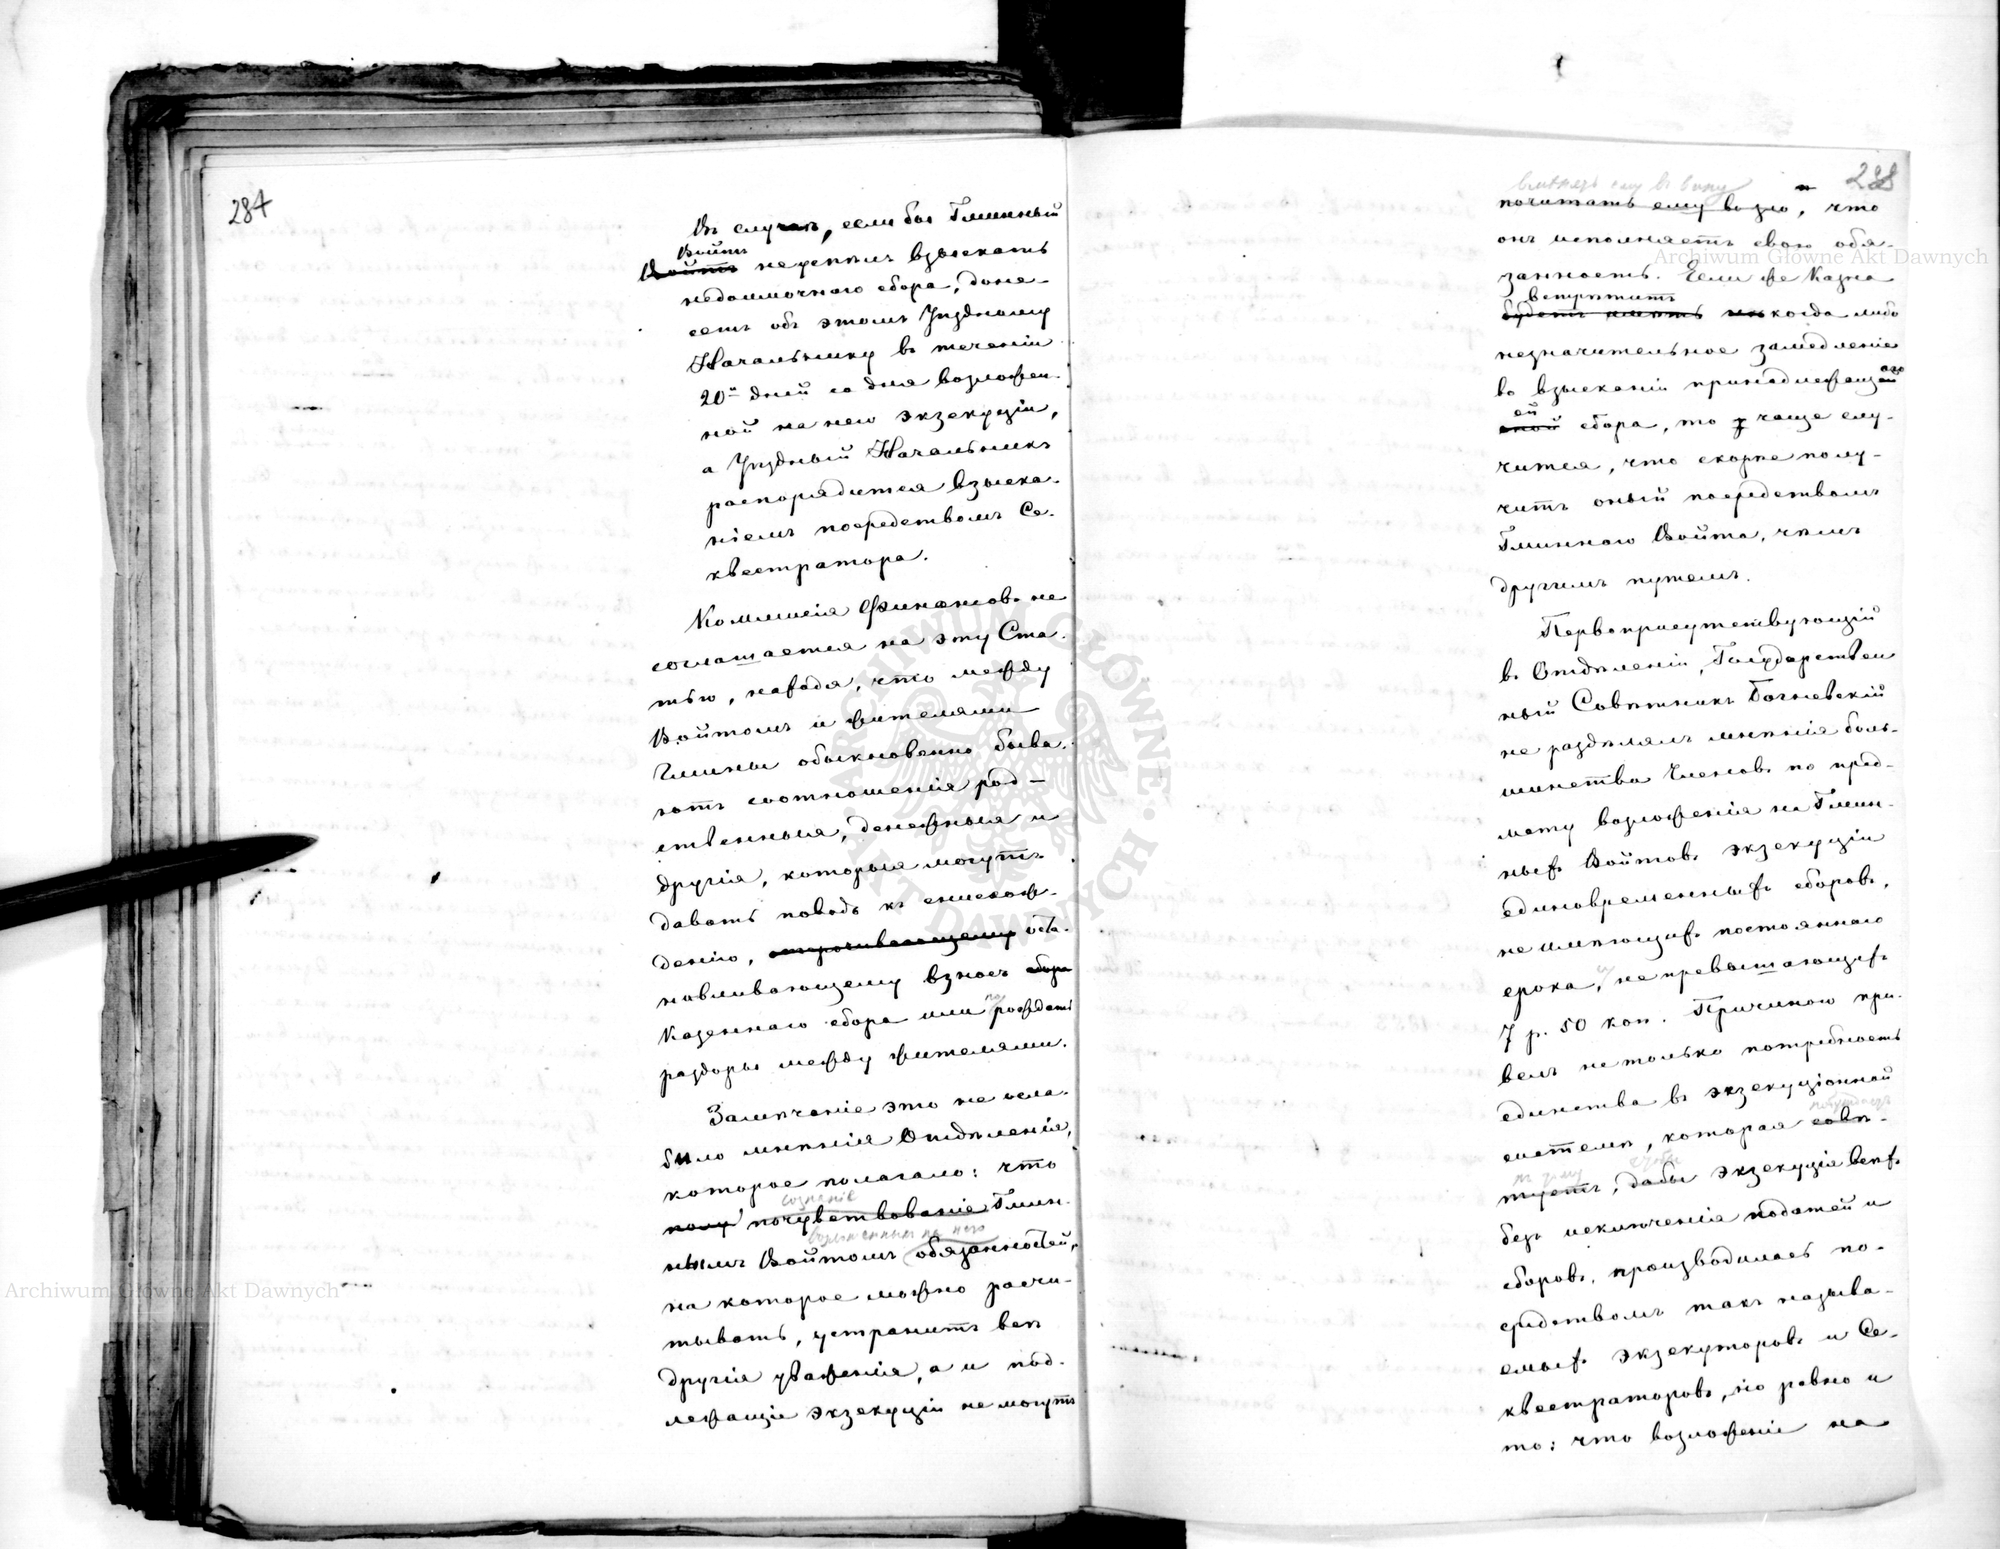 284
Въ случаѣ, если бы Гминный
Войтъ
Войтъ не успѣлъ взыскать
недоимочнаго сбора, доне-
сетъ объ этомъ Уѣздному
Начальнику въ теченіи
20и дней со дня возложен-
ной на него экзекуціи,
а Уѣздный Начальникъ
распорядится взыска-
ніемъ посредствомъ Се-
квестратора.
Коммисія Финансовъ не
соглашается на эту Ста-
тью, находя, что между
Войтомъ и жителями
Гмины обыкновенно быва-
ютъ соотношенія род-
ственныя, денежныя и
другія, которыя могутъ
давать поводъ къ снисхож-
денію, оста-
навливающему взносъ сбора
по
Казеннаго сбора или рождать
раздоры между жителями.
Замѣчаніе это не осла-
било мнѣнія Отдѣленія,
которое полагало: что
сознаніе
почувствованіе Гмин-
возложенныхъ на него
нымъ Войтомъ обязанностей,
на которое можно расчи-
тывать, устранитъ всѣ
другія уваженія, а и под-
лежащіе экзекуціи не могутъ
288
вмѣнять ему въ вину
почитать ему во зло, что
онъ исполняетъ свою обя-
занность. Если же Казна
встрѣтитъ
будетъ имѣть когда либо
незначительное замедленіе
во взысканіи принадлежащаго
ей
оной сбора, то чаще слу-
чится, что скорѣе полу-
читъ оный посредствомъ
Гминнаго Войта, чѣмъ
другимъ путемъ.
Первоприсутствующій
въ Отдѣленіи, Государствен
ный Совѣтникъ
не раздѣлялъ мнѣнія боль-
шинства Членовъ по пред-
мету возложенія на Гмин-
ныхъ Войтовъ экзекуціи
единовременныхъ сборовъ,
не имѣющихъ постояннаго
срока, и не превышающихъ
7 р. 50 коп. Причиною при-
велъ не только потребность
единства въ экзекуціонной
системѣ, которая совѣ-
къ тому чтобы
туетъ, дабы экзекуція всѣхъ
безъ исключенія податей и
сборовъ, производилась по-
средствомъ такъ называ-
емыхъ Экзекуторовъ и Се-
квестраторовъ, но равно и
то: что возложеніе на
Archiwum Główne Akt Dawnych
Archiwum Główne Akt Dawnych
ARCHIWUM GŁÓWNE AKT DAWNYCH